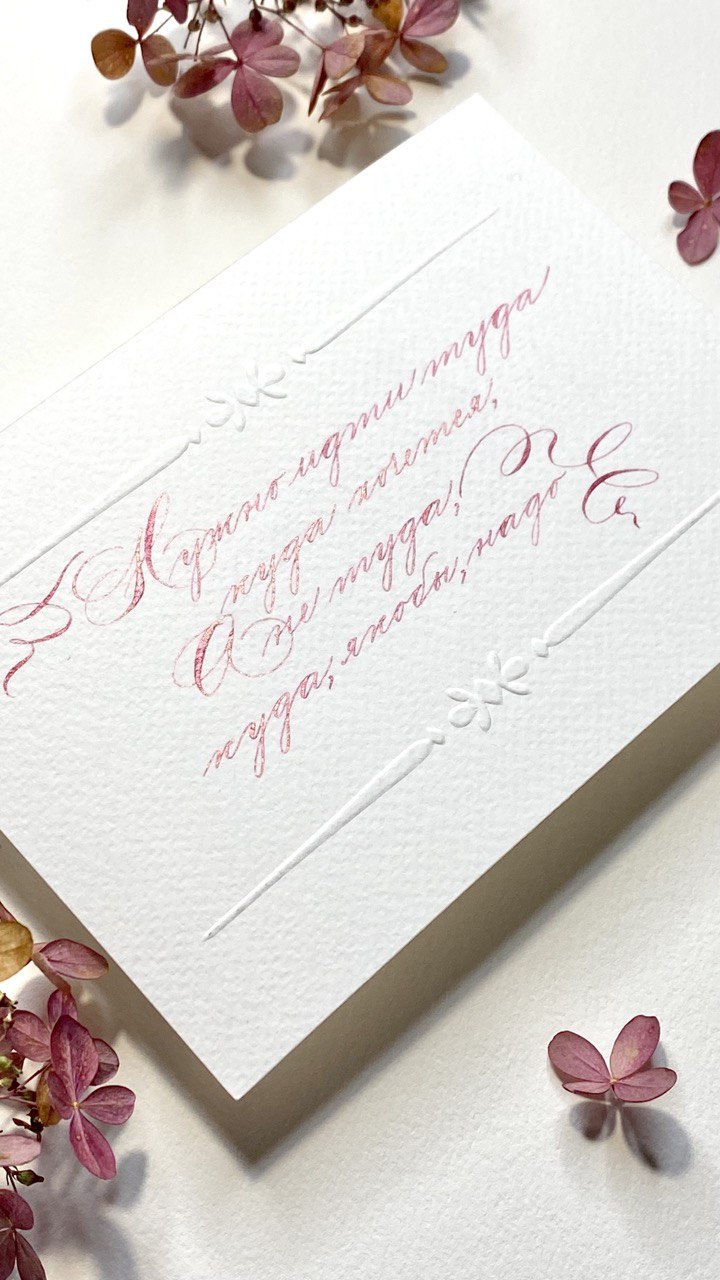 Нужно идти туда
куда хочется,
А не туда,
куда, якобы, надо